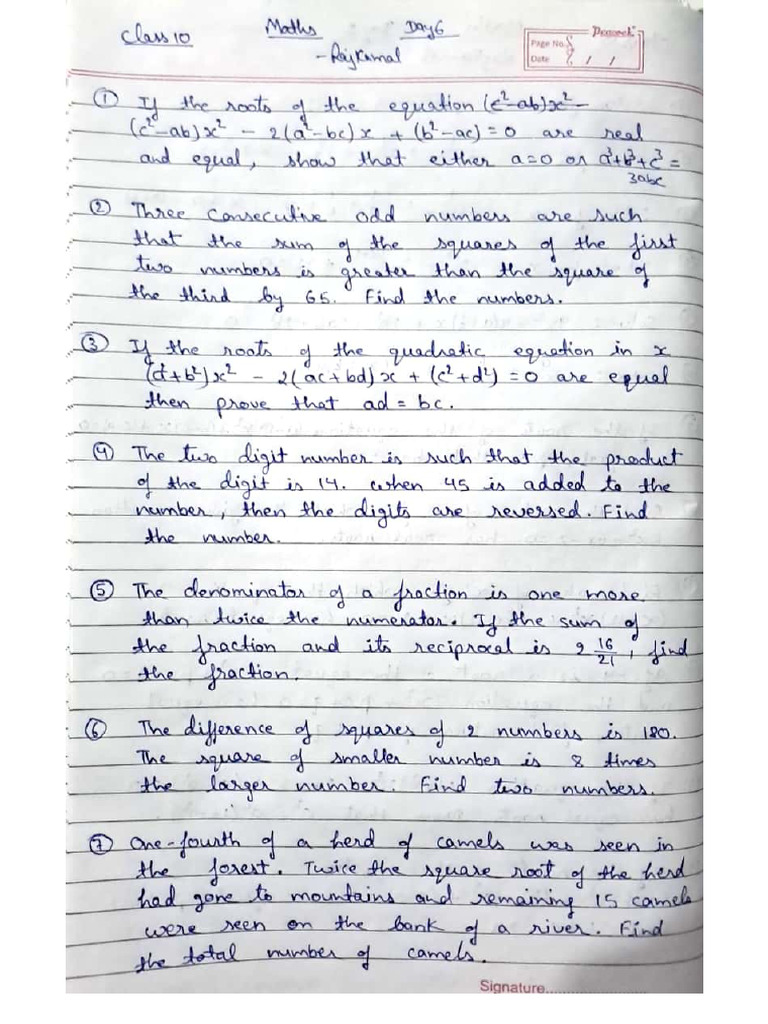 Class 10 Maths Day 6
- Rajkamal
Peacock
Page No. 8
Date / /
① If the roots of the equation (c²-ab)x²-
(c²-ab)x² - 2(a²-bc)x + (b²-ac)=0 are real
and equal, show that either a=0 or a³+b³+c³=
3abc
② Three consecutive odd numbers are such
that the sum of the squares of the first
two numbers is greater than the square of
the third by 65. Find the numbers.
③ If the roots of the quadratic equation in x
(a²+b²)x² - 2(ac+bd)x + (c²+d²)=0 are equal
then prove that ad=bc.
④ The two digit number is such that the product
of the digit is 14. when 45 is added to the
number, then the digits are reversed. Find
the number.
⑤ The denominator of a fraction is one more
than twice the numerator. If the sum of
the fraction and its reciprocal is 2 16/21, find
the fraction.
⑥ The difference of squares of 2 numbers is 180.
The square of smaller number is 8 times
the larger number. Find two numbers.
⑦ One-fourth of a herd of camels was seen in
the forest. Twice the square root of the herd
had gone to mountains and remaining 15 camels
were seen on the bank of a river. Find
the total number of camels.
Signature..................